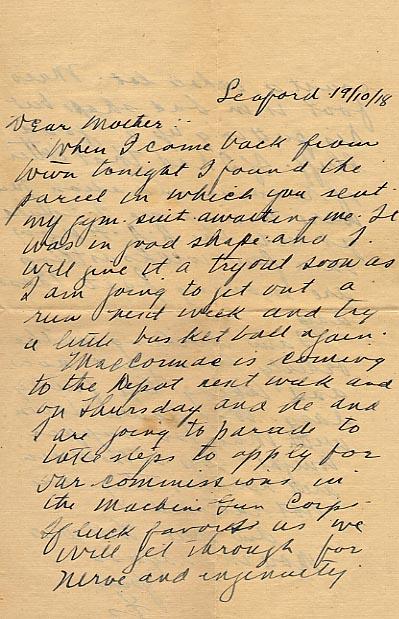 Seaford 19/10/18
Dear Mother:
When I come back from
town tonight I found the
parcel in which you sent
my gym. suit awaiting me. It
was in good shape and I
will give it a tryout soon as
I am going to get out a
run next week and try
a little basket ball again.
MacCormac is coming
to the Depot next week and
on Thursday and he and
I are going to parade to
take steps to apply for
our commissions in
the Machine Gun Corps
If luck favors us we
will get through for
nerve and ingenuity.